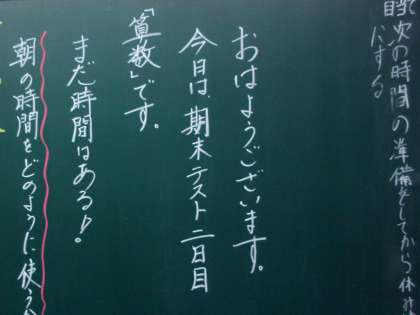 次の時間の準備をしてから休
にする
おはようございます。
今日は、期末テスト二日目
「算数」です。
まだ時間はある♪。
朝の時間をどのように使う